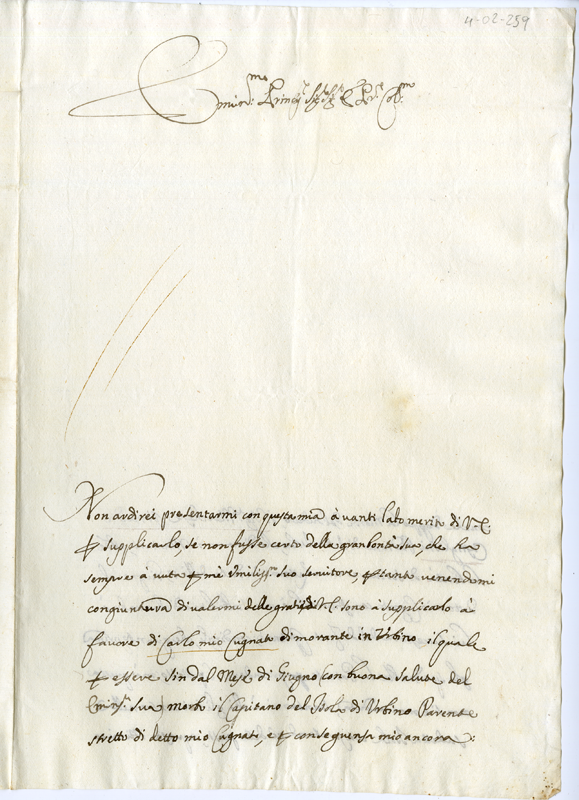 4-02-259
Emin.mo Princ.e Sig.r Sig.r e P.ne Col.mo
Non ardirei presentarmi con questa mia à vanti lalto merito di V.E.
p supplicarlo, se non fusse certo della gran bontà sua che ha
sempre à vuta p mè Umiliss.o suo servitore, p tanto venendomi
congiuntura di valermi delle gratie di V.E. sono à supplicarlo à
favore di Carlo mio Cugnato dimorante in Urbino il quale
p essere sin dal Mese di Giugno (con buona salute del
Emin.za sua) morto il Capitano del Isola di Urbino Parente
stretto di detto mio Cugnato, e p conseguensa mio ancora: